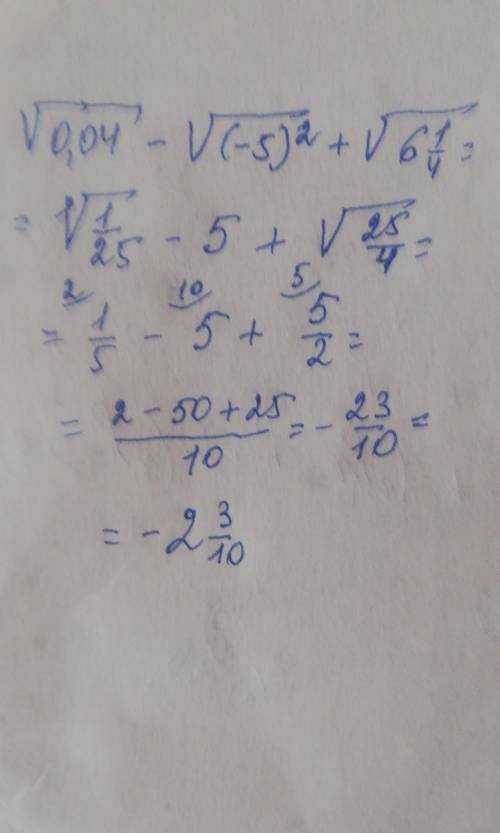 √0,04 - √(-5)² + √6 1/4 =
= √1/25 - 5 + √25/4 =
= 1/5 - 5 + 5/2 =
= (2 - 50 + 25)/10 = - 23/10 =
= - 2 3/10